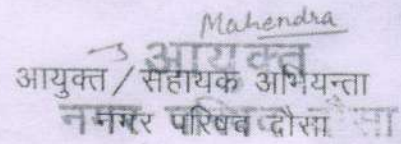 Mahendra
आयुक्त
आयुक्त / सहायक अभियन्ता
नगर परिषद दौसा